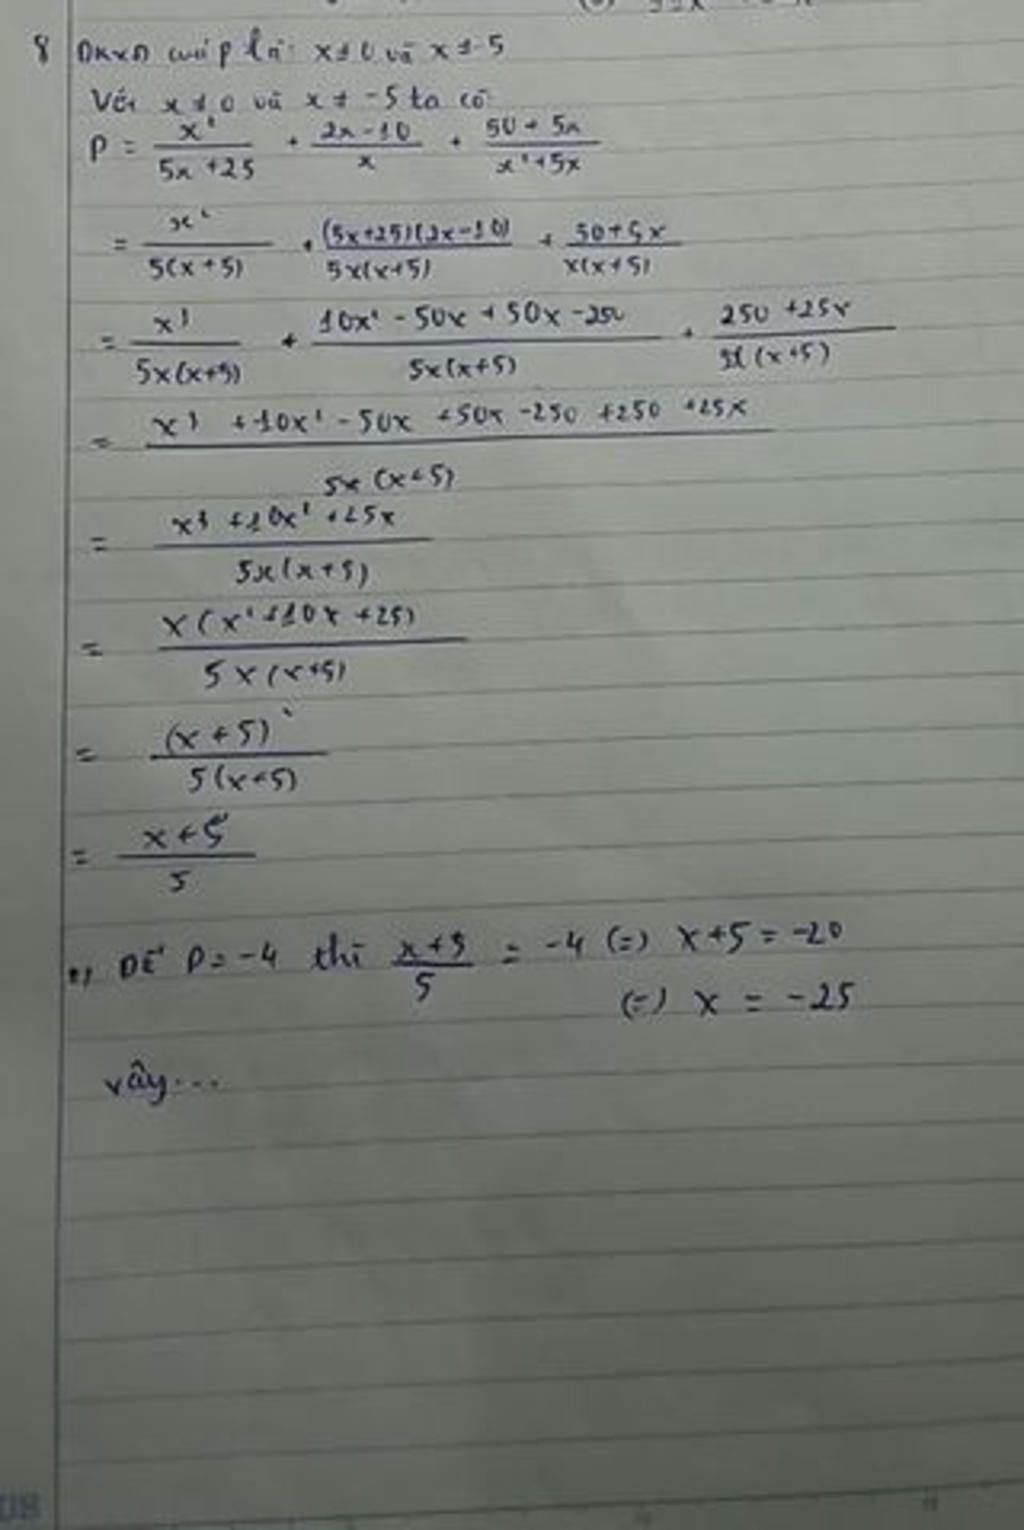 8 ĐKXĐ của P là: x ≠ 0 và x ≠ -5
Với x ≠ 0 và x ≠ -5 ta có:
P = x²/(5x+25) + (2x-10)/x + (50+5x)/(x²+5x)
= x²/(5(x+5)) + ((5x+25)(2x-10))/(5x(x+5)) + (50+5x)/(x(x+5))
= x³/(5x(x+5)) + (10x² - 50x + 50x - 250)/(5x(x+5)) + (250+25x)/(5x(x+5))
= (x³ + 10x² - 50x + 50x - 250 + 250 + 25x)/(5x(x+5))
= (x³ + 10x² + 25x)/(5x(x+5))
= x(x² + 10x + 25)/(5x(x+5))
= (x+5)²/(5(x+5))
= (x+5)/5
Để P = -4 thì (x+5)/5 = -4 (=) x+5 = -20
(=) x = -25
vậy...